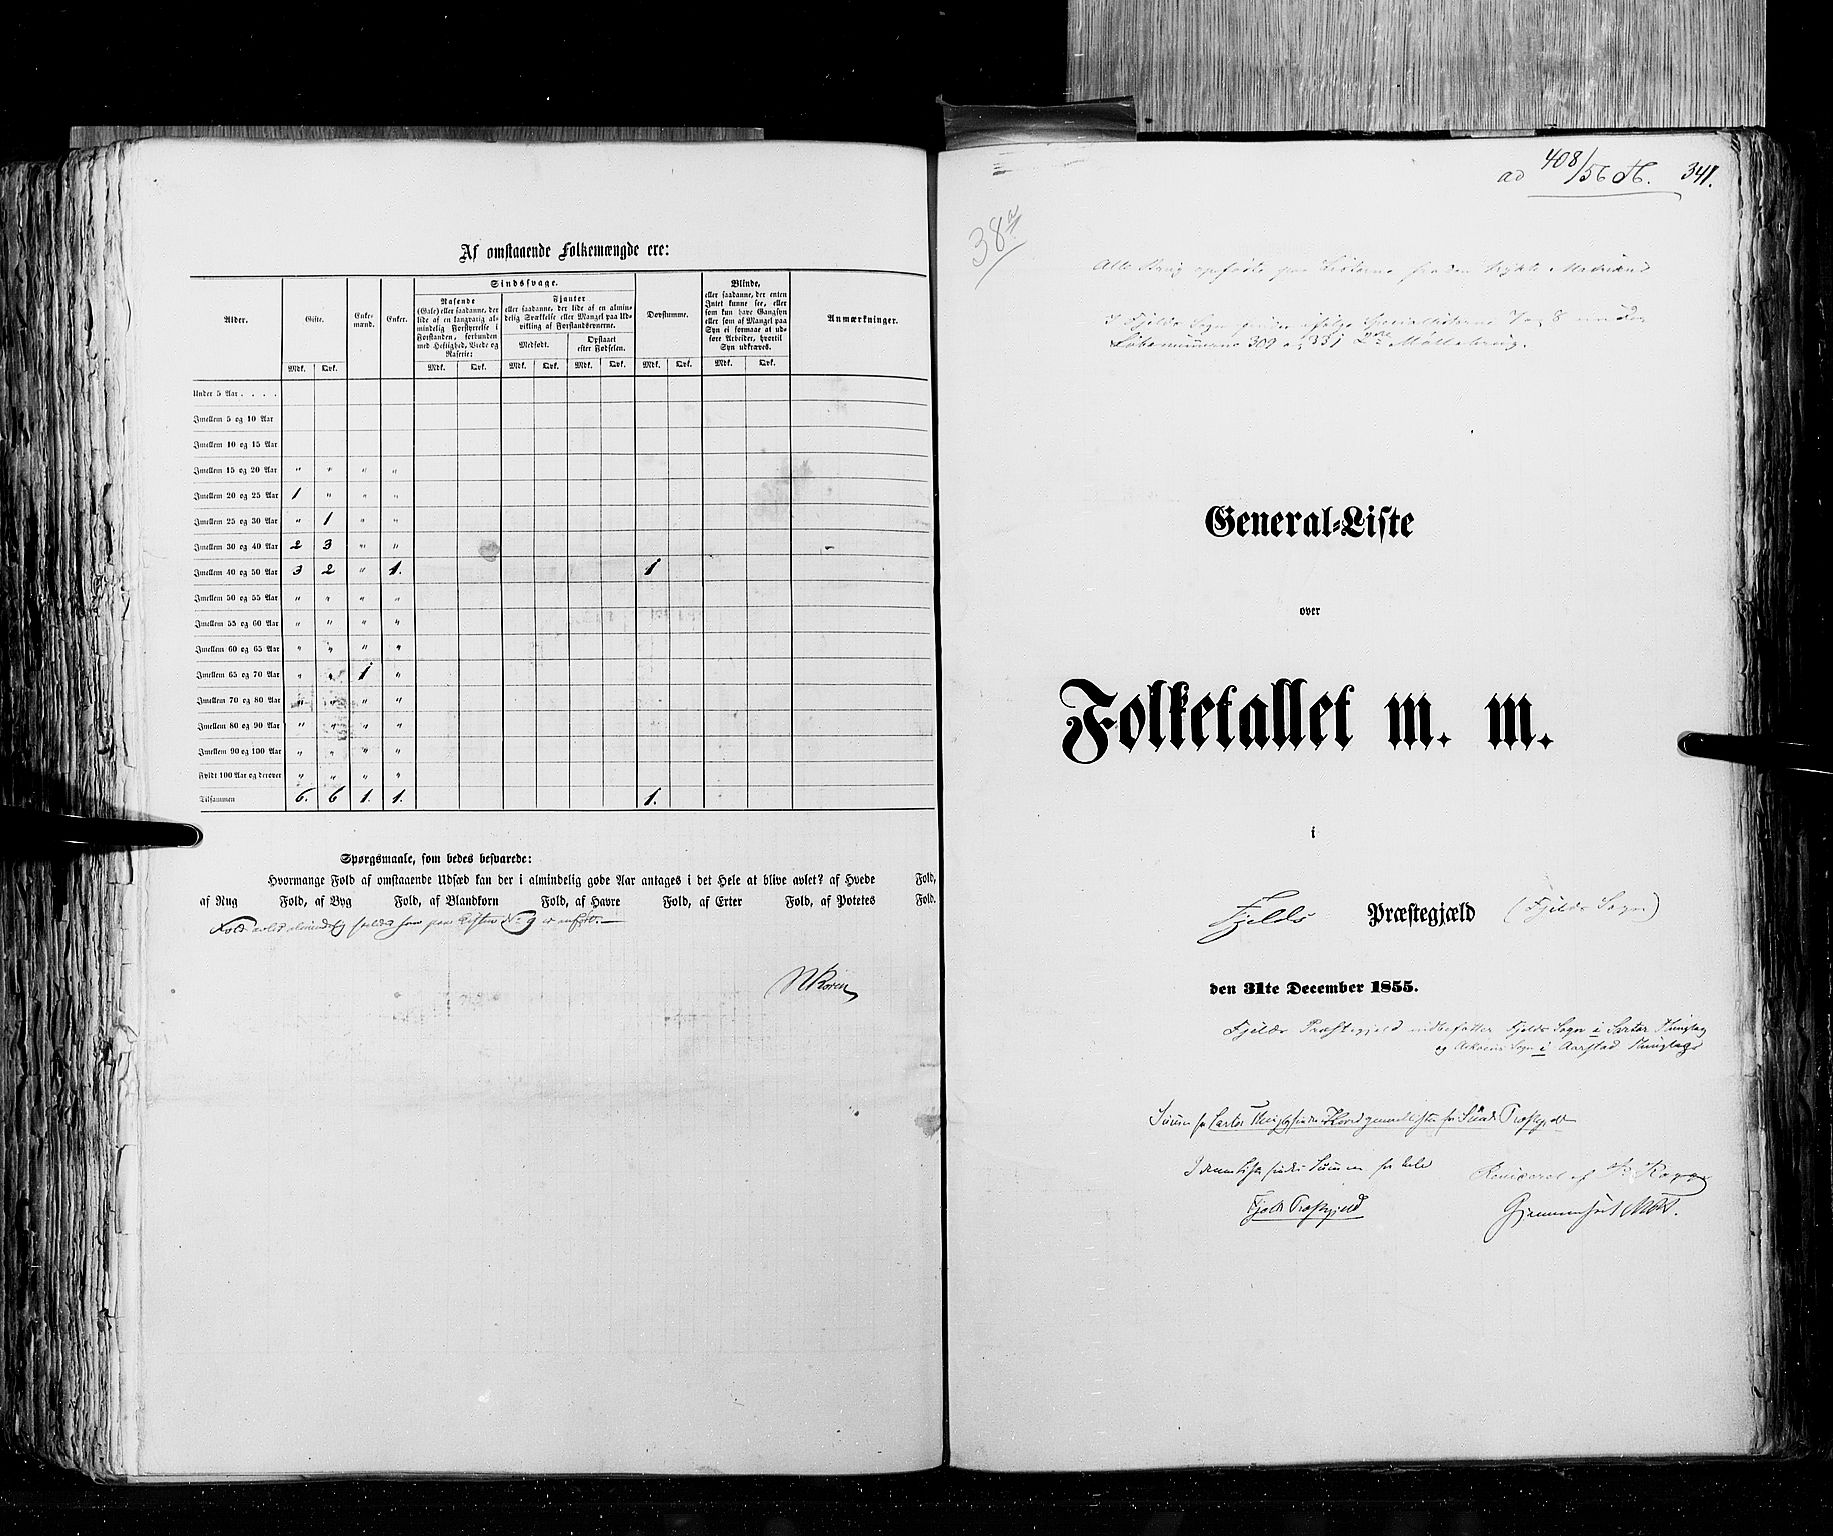 Af omstaaende Folkemængde ere:
Alder. Gifte. Enke-mænd. Enker. Sindssvage. Døvstumme. Blinde, Anmærkninger.
Rasende (Gale) eller saadanne, der lide af en langvarig almindelig Forstyrrelse i Forstanden, forbunden med Heftighed, Vrede og Raserie:
Fjanter eller saadanne, der lide af en almindelig Svækkelse eller Mangel paa Udvikling af Forstandsevnerne.
Medfødt. Opstaaet efter Fødselen.
eller saadanne, der enten Intet kunne see, eller som kun have Gangsyn eller som af Mangel paa Syn ei formaae at udføre Arbeider, hvortil Syn udkræves.
Mdk. Qvk. Mdk. Qvk. Mdk. Qvk. Mdk. Qvk. Mdk. Qvk. Mdk. Qvk.
Under 5 Aar . . . .
Imellem 5 og 10 Aar
Imellem 10 og 15 Aar
Imellem 15 og 20 Aar " " " "
Imellem 20 og 25 Aar 1 " " "
Imellem 25 og 30 Aar " 1 " "
Imellem 30 og 40 Aar 2 3 " "
Imellem 40 og 50 Aar 3 2 " 1. 1
Imellem 50 og 55 Aar " " " "
Imellem 55 og 60 Aar " " " "
Imellem 60 og 65 Aar " " " "
Imellem 65 og 70 Aar " " 1 "
Imellem 70 og 80 Aar " " " "
Imellem 80 og 90 Aar " " " "
Imellem 90 og 100 Aar " " " "
Fyldt 100 Aar og derover " " " "
Tilsammen 6. 6 1. 1. 1.
Spørgsmaale, som bedes besvarede:
Hvormange Fold af omstaaende Udsæd kan der i almindelig gode Aar antages i det Hele at blive avlet? af Hvede Fold,
af Rug Fold, af Byg Fold, af Blandkorn Fold, af Havre Fold, af Erter Fold, af Potetes Fold.
som paa Listen No 9 er anført.
Koren
ad 408/56 341.
38a
I Fjelds Sogn 7 og 8
Løbenummerne 309 og 331 Møllebrug.
General-Liste
over
Folketallet m. m.
i
Fjelds Præstegjæld (Fjelds Sogn)
den 31te December 1855.
Fjelds Præstegjeld indbefatter Fjelds Sogn i Sartor Thinglag
og Askøens Sogn i Aarstad Thinglag
Summen for Sartor Thinglag findes Hovedgenerallisten for Sunds Præstegjeld
I denne Liste findes Summen for hele
Fjelds Præstegjeld
Revideret af
Gjennemseet